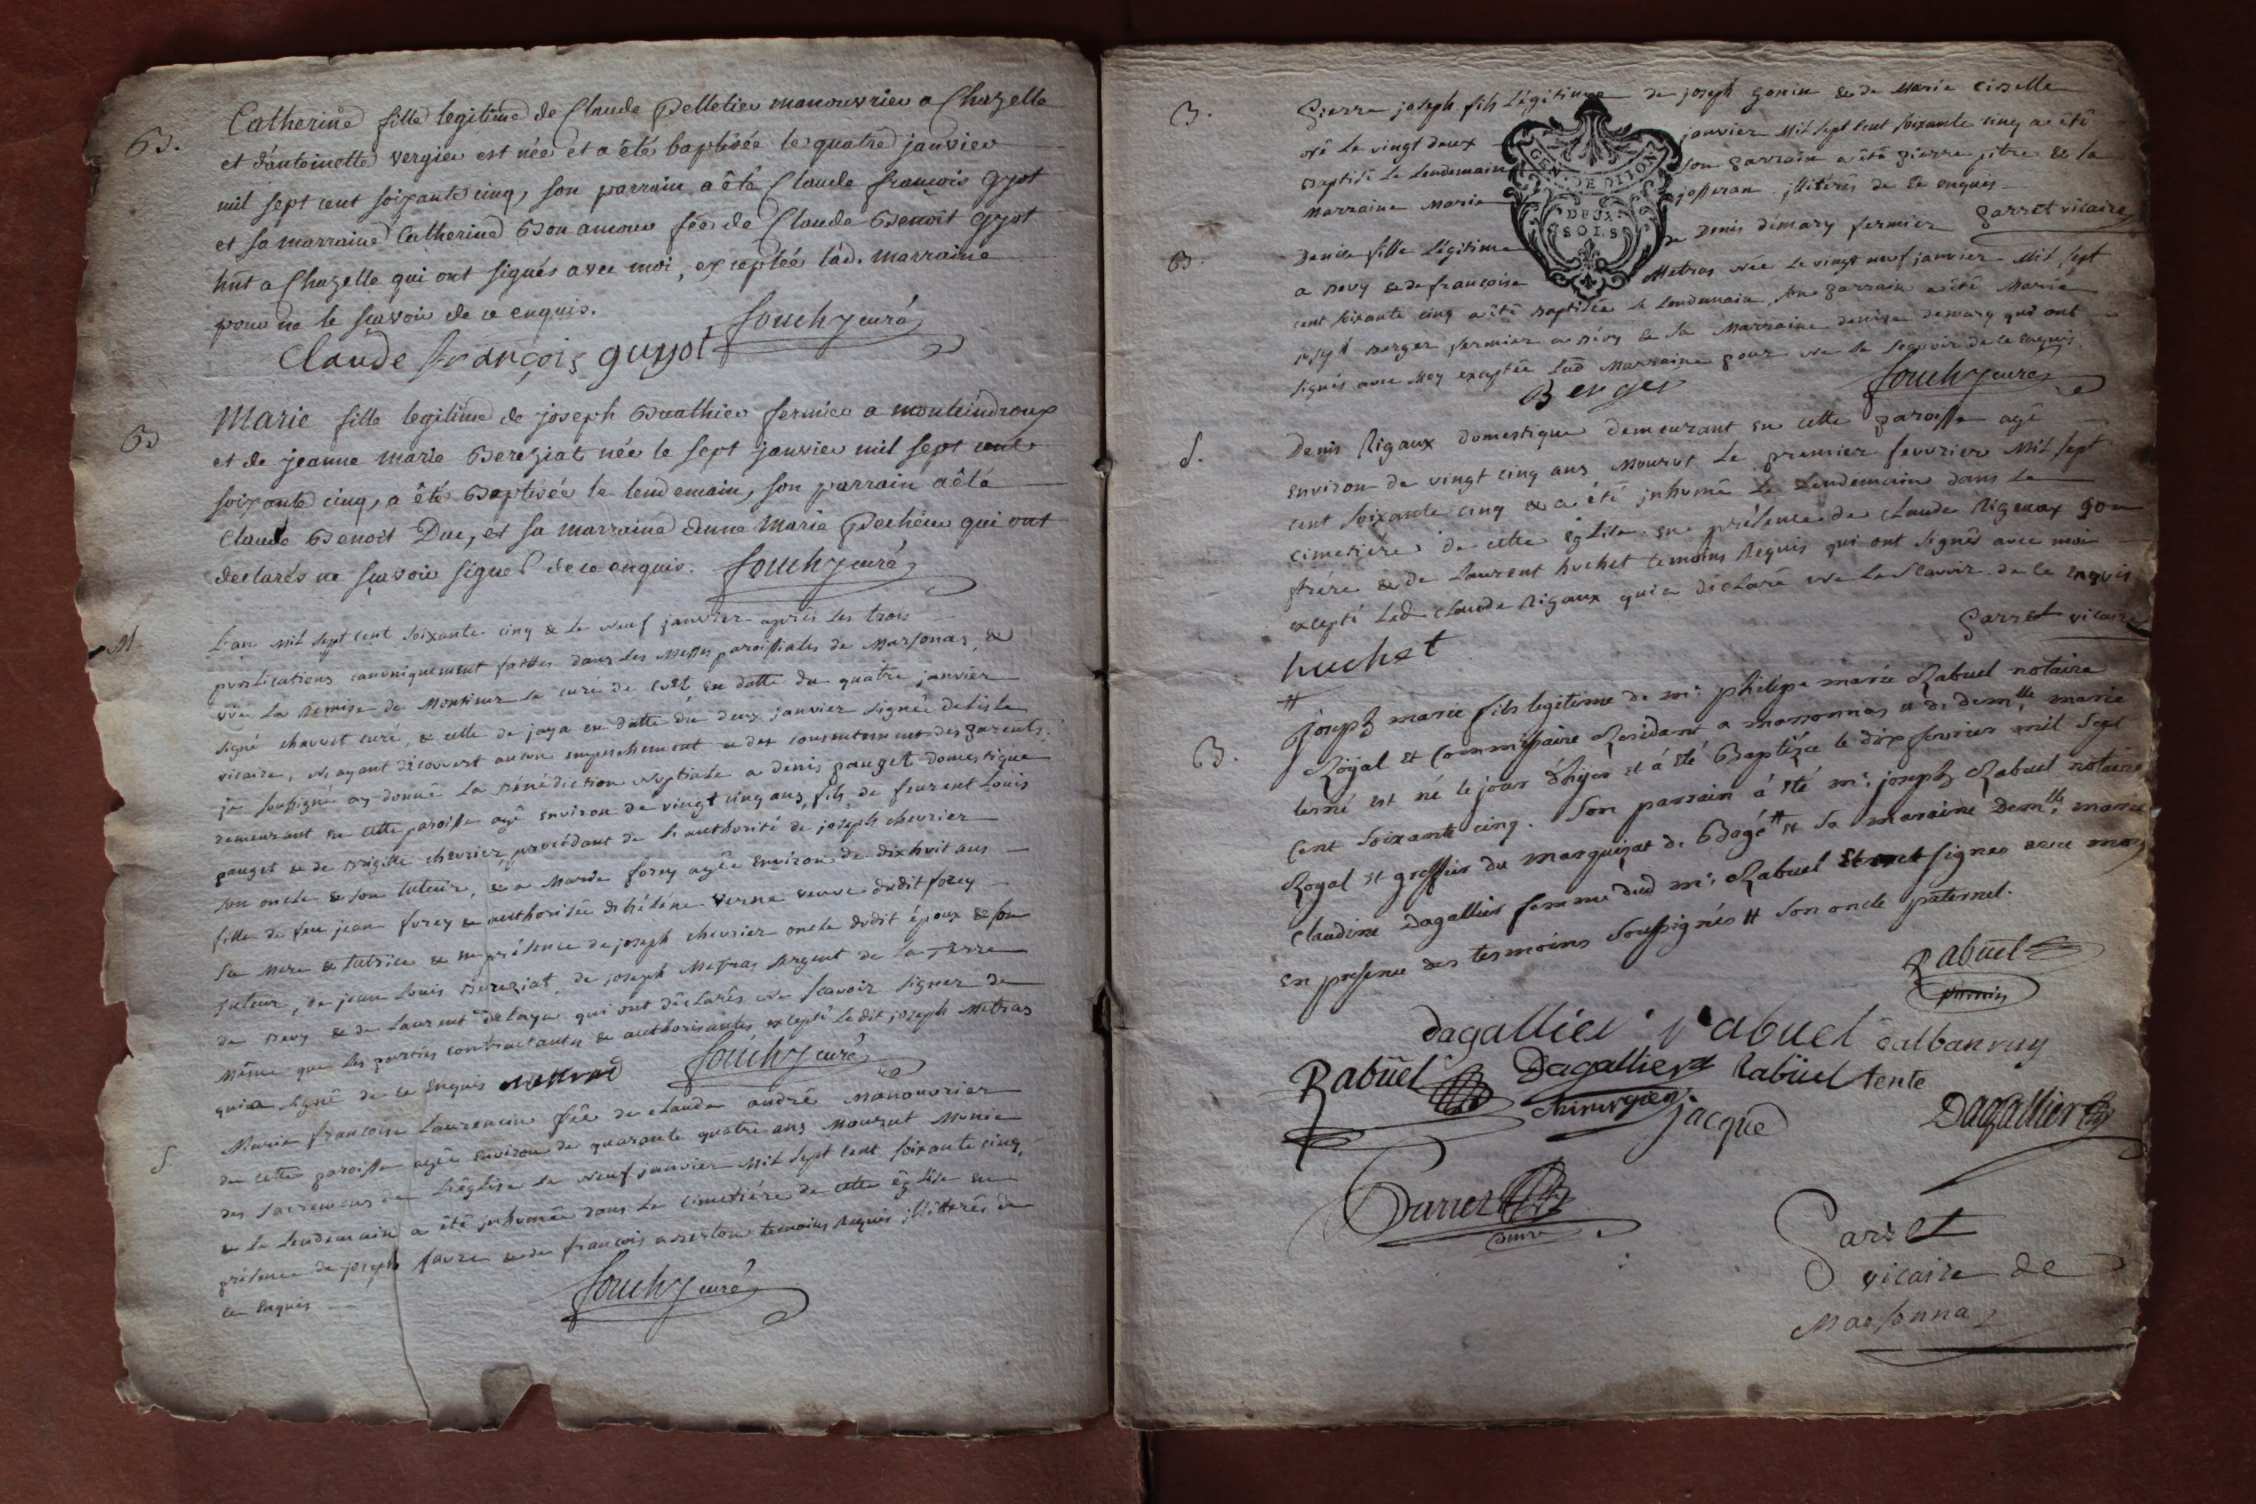 B.
Catherine fille legitime de Claude Pelletier manouvrier a Chazelle
et d'antoinette vergier est née et a été baptisée le quatre janvier
mil sept cent soixante cinq, son parrain a été Claude françois gyot
et sa marraine Catherine Bon amour fée de Claude Benoit gyot
hnt a Chazelle qui ont signés avec moi, exceptée lad. marraine
pour ne le sçavoir de ce enquis.
Claude françois guyot fouchy curé
B
Marie fille legitime de joseph Buathier fermier a monteindroux
et de jeanne marie Bereziat née le sept janvier mil sept cent
soixante cinq, a été Baptisée le lendemain, son parrain a été
Claude Benoit Duc, et sa marraine anne Marie Pocheur qui ont
declarés ne sçavoir signer de ce enquis. fouchy curé
M
L'an mil sept cent soixante cinq & le neuf janvier après les trois
publications canoniquement faittes dans les Messes paroissiales de Marsonas, &
vüe La Remise de Monsieur le curé de cuêt en datte du quatre janvier
signé chavet curé, & celle de jaya en datte du deux janvier signée delisle
vicaire, n'ayant découvert aucun empechement & du consentement des parents.
je soussigné ay donné La bénédiction Nuptiale a denis pauget domestique
demeurant en cette paroisse agé environ de vingt cinq ans, fils de feurent Loüis
pauget & de brigitte chevrier, procédant de L'authorité de joseph chevrier
son oncle & son tuteur, & a Marie forey agée environ de dixhuit ans
fille de feu jean forey & authorisée d'hélène verne veuve dudit forey
sa mere & tutrice & en présence de joseph chevrier oncle dudit époux & son
tuteur, de jean Louis Bereziat, de joseph Metras sergent de La Terre
de bevy & de Laurent delaya qui ont déclarés ne scavoir signer de
même que les parties contractantes & authorisantes excepté Le dit joseph Metras
qui a signé de ce enquis metras fouchy curé
S
Marie françoise Laurencin fée de claude andré Manouvrier
de cette paroisse agée environ de quarante quatre ans Mourut Munie
des sacremens de L'église le neuf janvier Mil sept cent soixante cinq,
& le lendemain a été inhumée dans Le cimetière de cette église en
présence de joseph favre & de françois temoins Requis illitterés de
ce enquis
fouchy curé
B.
Pierre joseph fils Légitime de joseph gonin & de Marie cizelle
né le vingt deux janvier Mil sept cent soixante cinq a été
Baptisé Le lendemain son parrain a été pierre pitre & la
Marraine Marie josseran illitérés de ce enquis
GEN. DE DIJON
DEUX
SOLS
parret vicaire
B.
Denise fille Légitime de Denis démary fermier
a bevy & de françoise Metras née Le vingt neuf janvier Mil sept
cent soixante cinq a été baptisée le lendemain, son parrain a été Marie
joseph berger fermier a bevy & sa Marraine denise demary qui ont
signés avec Moy exceptée Lad Marraine pour ne le sçavoir de ce enquis
Berger fouchy curé
S.
Denis Rigaux domestique demeurant en cette paroisse agé
environ de vingt cinq ans Mourut Le premier fevvrier Mil sept
cent soixante cinq & a été inhumé Le Lendemain dans Le
cimetière de cette église en présence de claude Rigaux son
frére & de Laurent huchet temoins Requis qui ont signés avec moi
excepté Led claude Rigaux qui a déclaré ne Le scavoir de ce enquis
parret vicaire
huchet
B.
joseph marie fils legitime de mr. philipe marie Rabuel notaire
Röyal et Commissaire Residant a marsonnas et de demlle. marie
terné est né le jour d'hijer et á eté Baptize le dix fevrier mil sept
Cent soixante cinq. Son parrain á eté mr. joseph Rabuel notaire
Royal et greffier du marquizat de Bagé # et sa maraine Demlle. marie
Claudine Dagallier femme dud mr. Rabuel signes avec moy
en presence des tesmoins soussignés # son oncle paternel.
Rabüel
parrain
dagallier rabuel dalbanvuy
Rabüel Dagallier Rabüel tente
chirurgien
jacque Dagallier
Parret
vicaire de
Marsonna